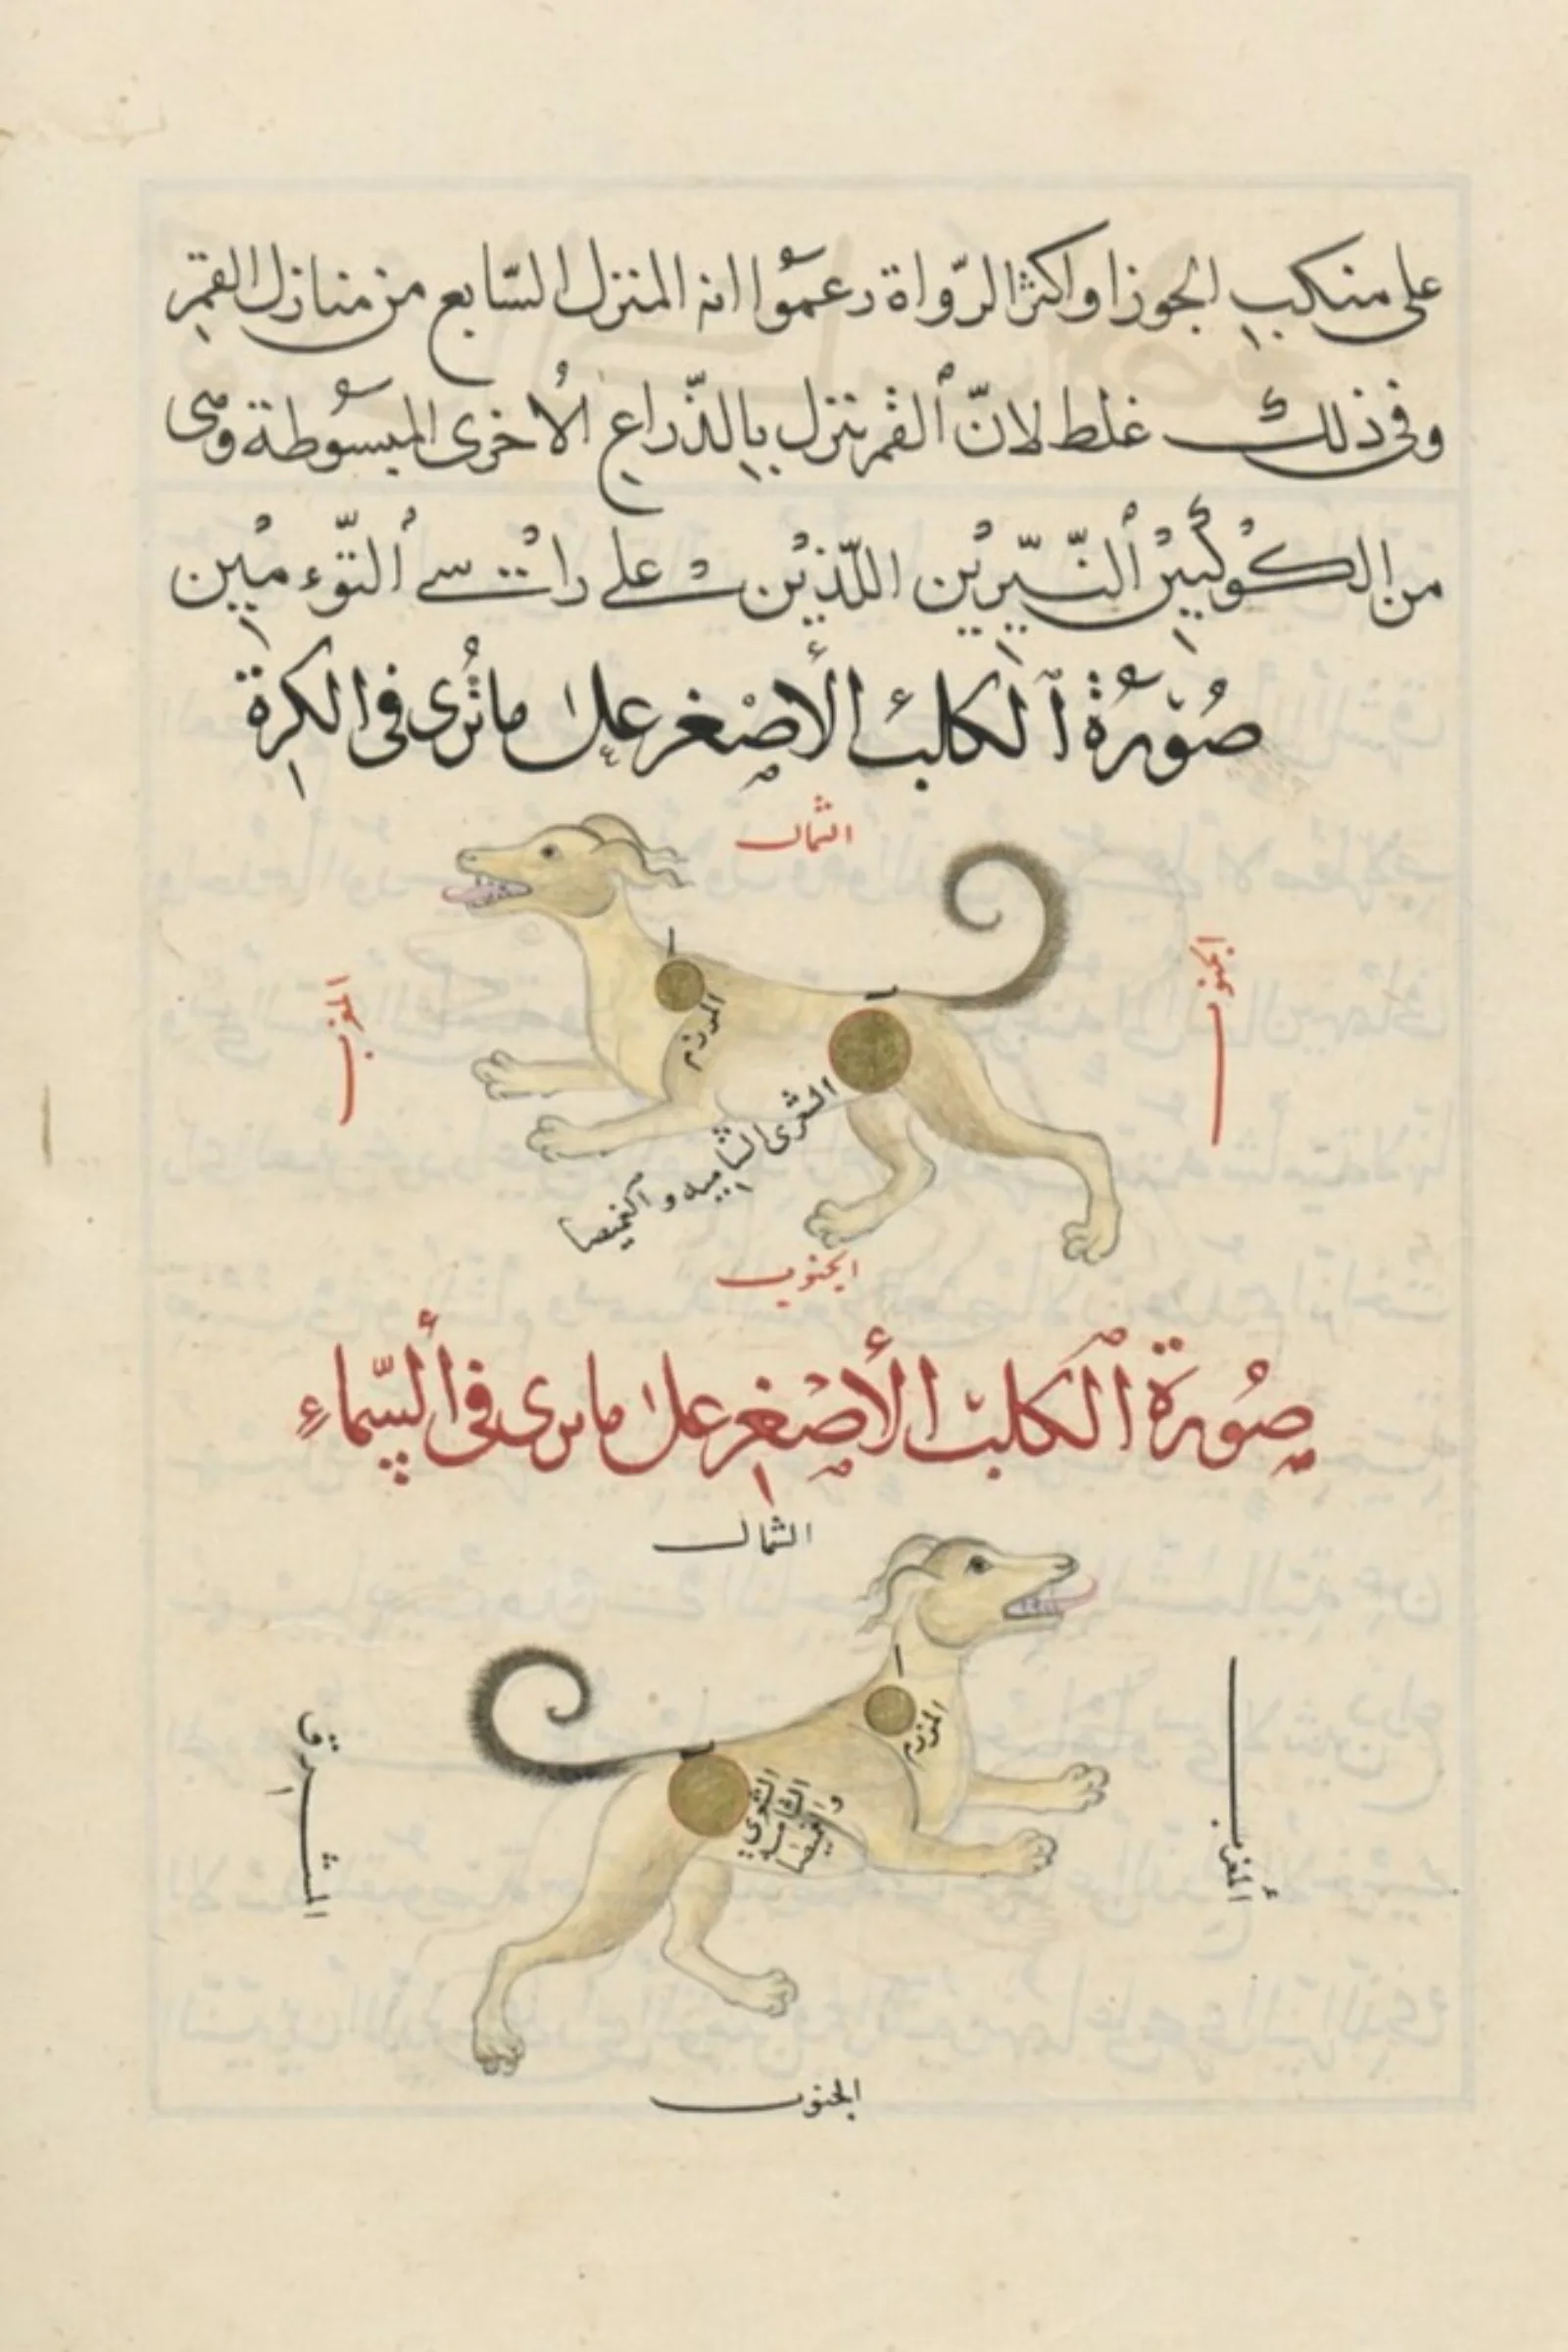 على منكبِ الجوزا واكثر الرّواة زعمَوا انه المنزل السّابع من منازل القمَرِ
وفى ذلك غلط لانّ ٱلقمر ينزل بِالذّراعِ الأُخرى المبسُوطة وهى
من الكَوكبَيْنِ ٱلنَّيِّرَيْن اللّذَيْن على رأسے ٱلتّوءمَيْنِ
صُوۡرَةُ ٱلكلبُ الأصْغر على ما تُرى فى الكرةِ
الشمال
المغرب
الجنوب
المرزم
الشعرى الشاميه والغميصا
الجنوب
صُورَة ٱلكلب الأصْغرِ على ما يرى فى ٱلسّماءِ
الشمال
المشرق
المغرب
المرزم
الشعرى
الشاميه
والغميصا
الجنوب